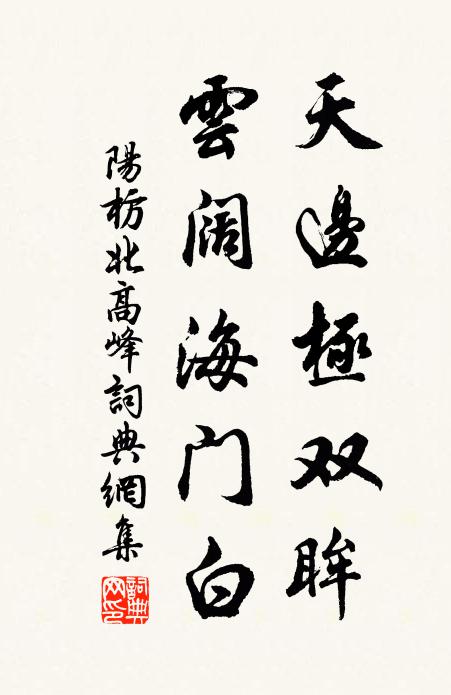 天邊極双眸
雲闊海门白
陽枋北高峰詞典網集
詞典网印